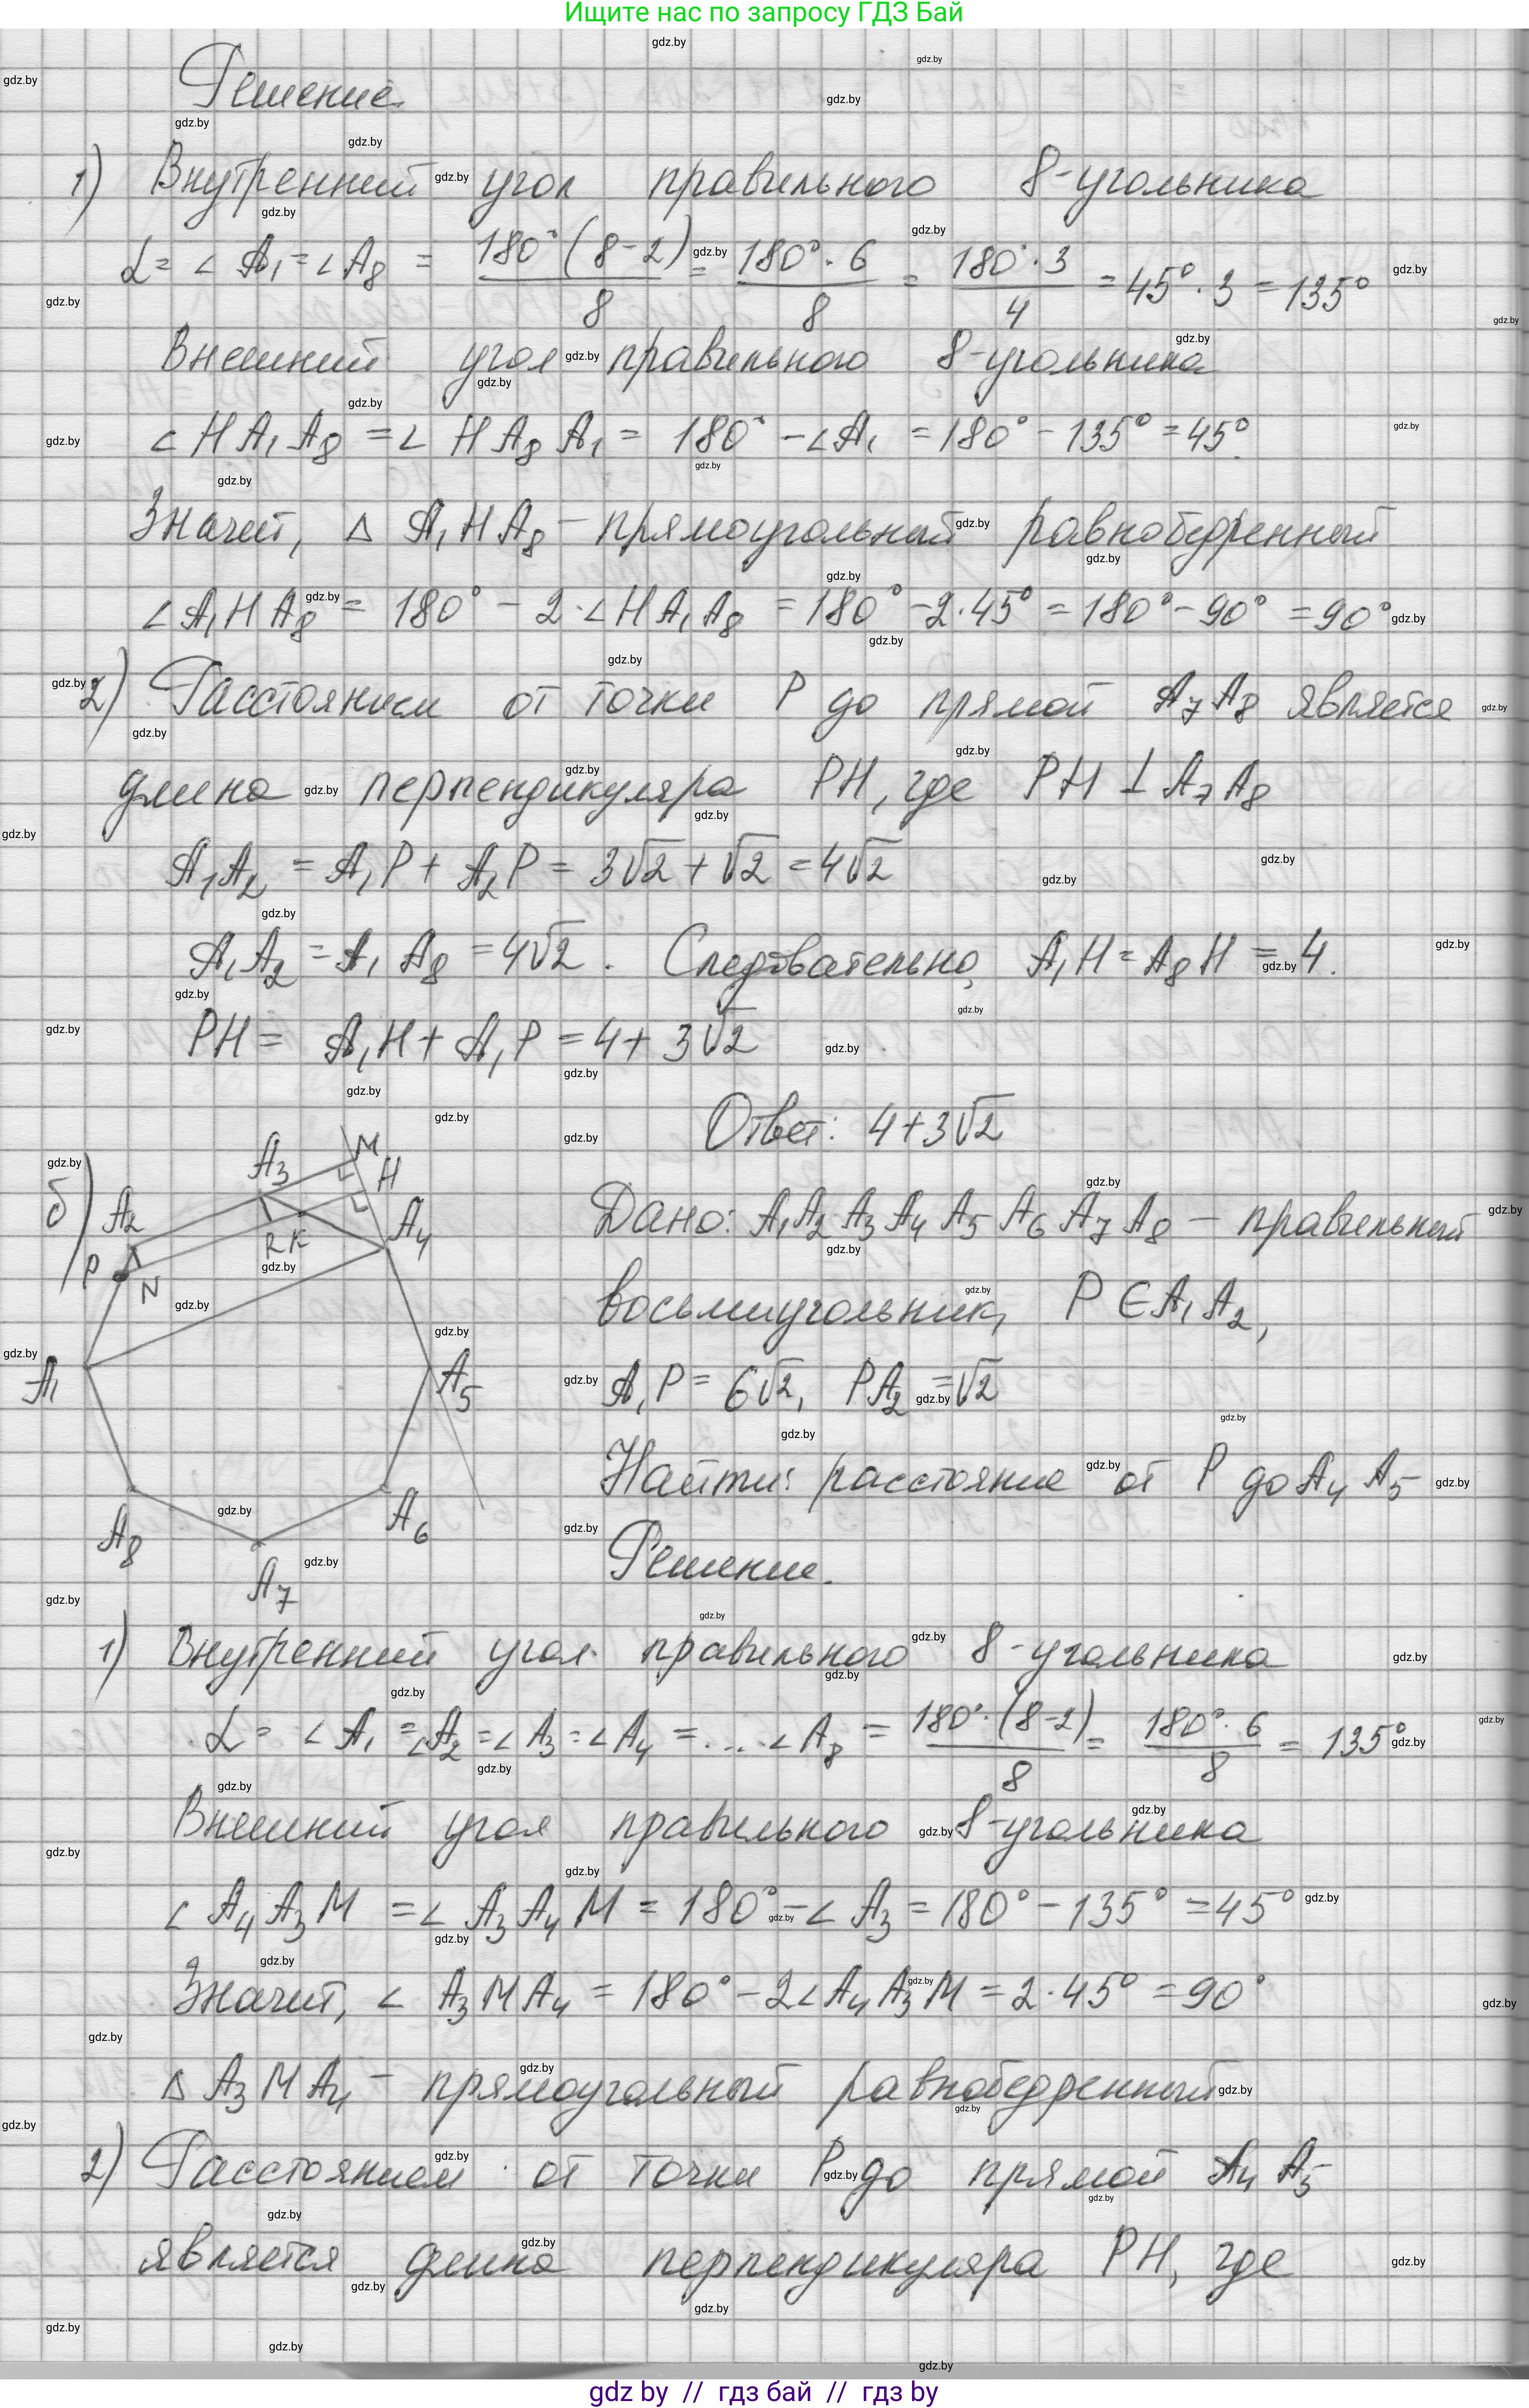 Ищите нас по запросу ГДЗ Бай
Решение.
1) Внутренний угол правильного 8-угольника
α = ∠A₁ = ∠A₈ = 180°(8-2)/8 = 180°·6/8 = 180°·3/4 = 45°·3 = 135°
Внешний угол правильного 8-угольника
∠HA₁A₈ = ∠HA₈A₁ = 180° - ∠A₁ = 180° - 135° = 45°.
Значит, △ A₁HA₈ - прямоугольный равнобедренный
∠A₁HA₈ = 180° - 2·∠HA₁A₈ = 180° - 2·45° = 180° - 90° = 90°
2) Расстоянием от точки P до прямой A₇A₈ является
длина перпендикуляра PH, где PH ⊥ A₇A₈
A₁A₂ = A₁P + A₂P = 3√2 + √2 = 4√2
A₁A₂ = A₁A₈ = 4√2. Следовательно, A₁H = A₈H = 4.
PH = A₁H + A₁P = 4 + 3√2
Ответ: 4+3√2
б)
A₃ M H
A₂ A₄
R K
P N
A₁ A₅
A₈ A₆
A₇
Дано: A₁A₂A₃A₄A₅A₆A₇A₈ - правильный
восьмиугольник, P ∈ A₁A₂,
A₁P = 6√2, PA₂ = √2
Найти: расстояние от P до A₄A₅
Решение.
1) Внутренний угол правильного 8-угольника
α = ∠A₁ = ∠A₂ = ∠A₃ = ∠A₄ = ....∠A₈ = 180°·(8-2)/8 = 180°·6/8 = 135°
Внешний угол правильного 8-угольника
∠A₄A₃M = ∠A₃A₄M = 180° - ∠A₃ = 180° - 135° = 45°
Значит, ∠A₃MA₄ = 180° - 2∠A₄A₃M = 2·45° = 90°
△ A₃MA₄ - прямоугольный равнобедренный
2) Расстоянием от точки P до прямой A₄A₅
является длина перпендикуляра PH, где
gdz by // гдз бай // гдз by